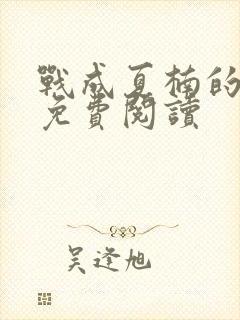 戰成夏楠的
免費閱讀
吴逢旭